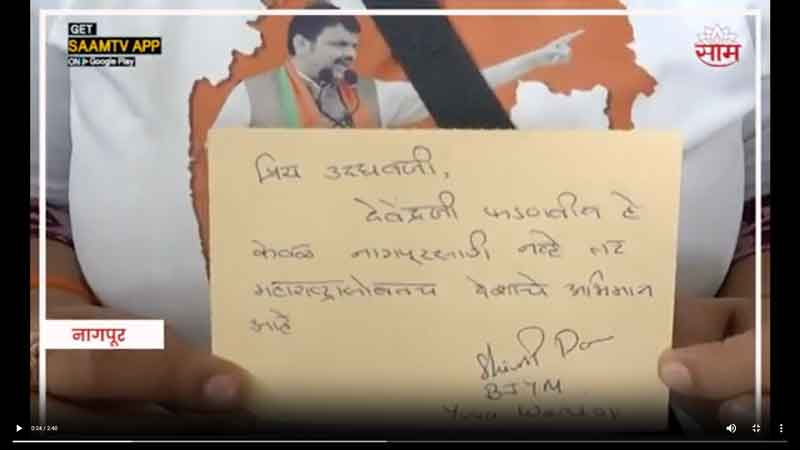 GET
SAAMTV APP
ON Google Play
साम
प्रिय उद्धवजी,
देवेंद्रजी फडणवीस हे
केवळ नागपूरसाठी नव्हे तर
महाराष्ट्रासोबतच देशाचे अभिमान
आहे
BJYM
नागपूर
0:24 / 2:40